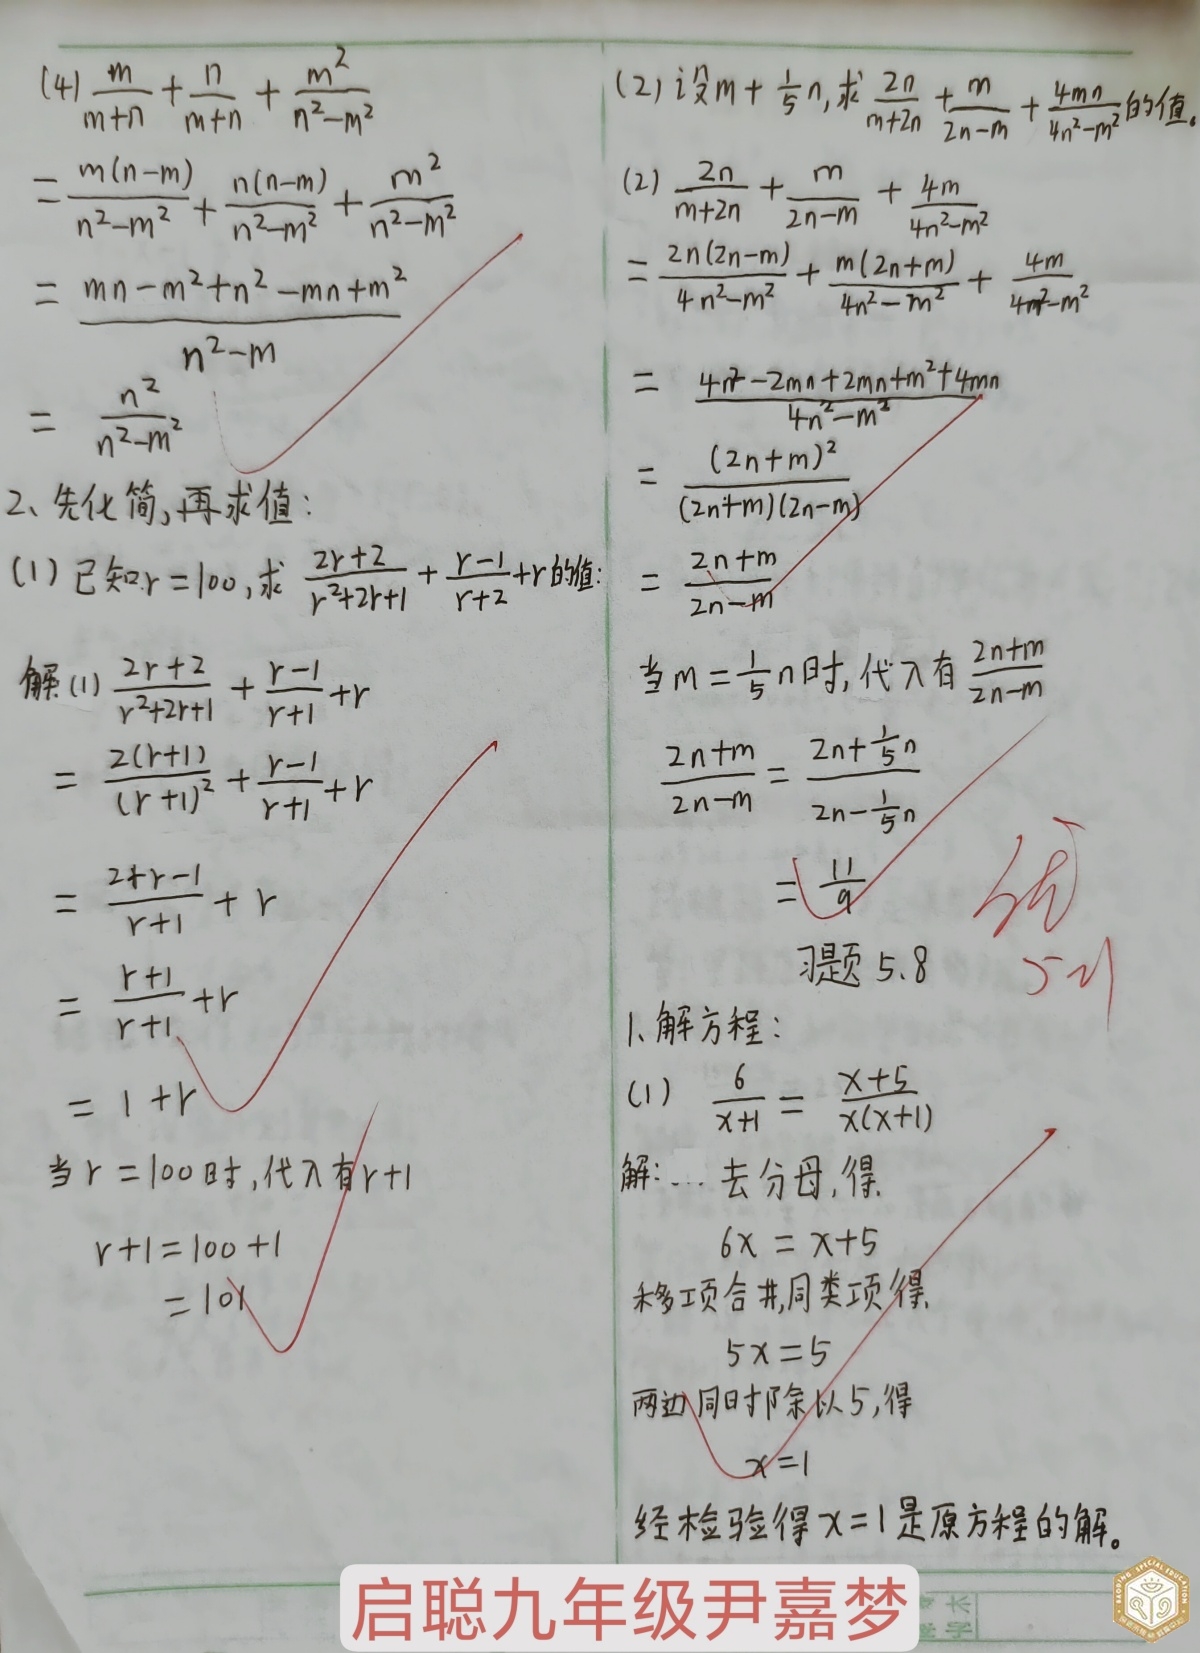 (4) m/(m+n) + n/(m+n) + m²/(n²-m²)
= m(n-m)/(n²-m²) + n(n-m)/(n²-m²) + m²/(n²-m²)
= (mn-m²+n²-mn+m²)/(n²-m)
= n²/(n²-m²)
2、先化简,再求值:
(1) 已知r=100,求 (2r+2)/(r²+2r+1) + (r-1)/(r+2) + r的值:
解(1) (2r+2)/(r²+2r+1) + (r-1)/(r+1) + r
= 2(r+1)/(r+1)² + (r-1)/(r+1) + r
= (2+r-1)/(r+1) + r
= (r+1)/(r+1) + r
= 1+r
当r=100时,代入有r+1
r+1=100+1
=101
(2) 设m+1/5n,求 2n/(m+2n) + m/(2n-m) + 4mn/(4n²-m²)的值。
(2) 2n/(m+2n) + m/(2n-m) + 4m/(4n²-m²)
= 2n(2n-m)/(4n²-m²) + m(2n+m)/(4n²-m²) + 4m/(4n²-m²)
= (4n²-2mn+2mn+m²+4mn)/(4n²-m²)
= (2n+m)²/(2n+m)(2n-m)
= (2n+m)/(2n-m)
当m=1/5n时,代入有(2n+m)/(2n-m)
(2n+m)/(2n-m) = (2n+1/5n)/(2n-1/5n)
= 11/9
优
5.21
习题5.8
1、解方程:
(1) 6/(x+1) = (x+5)/x(x+1)
解:…去分母,得
6x=x+5
移项合并,同类项得
5x=5
两边同时除以5,得
x=1
经检验得x=1是原方程的解。
启聪九年级尹嘉梦